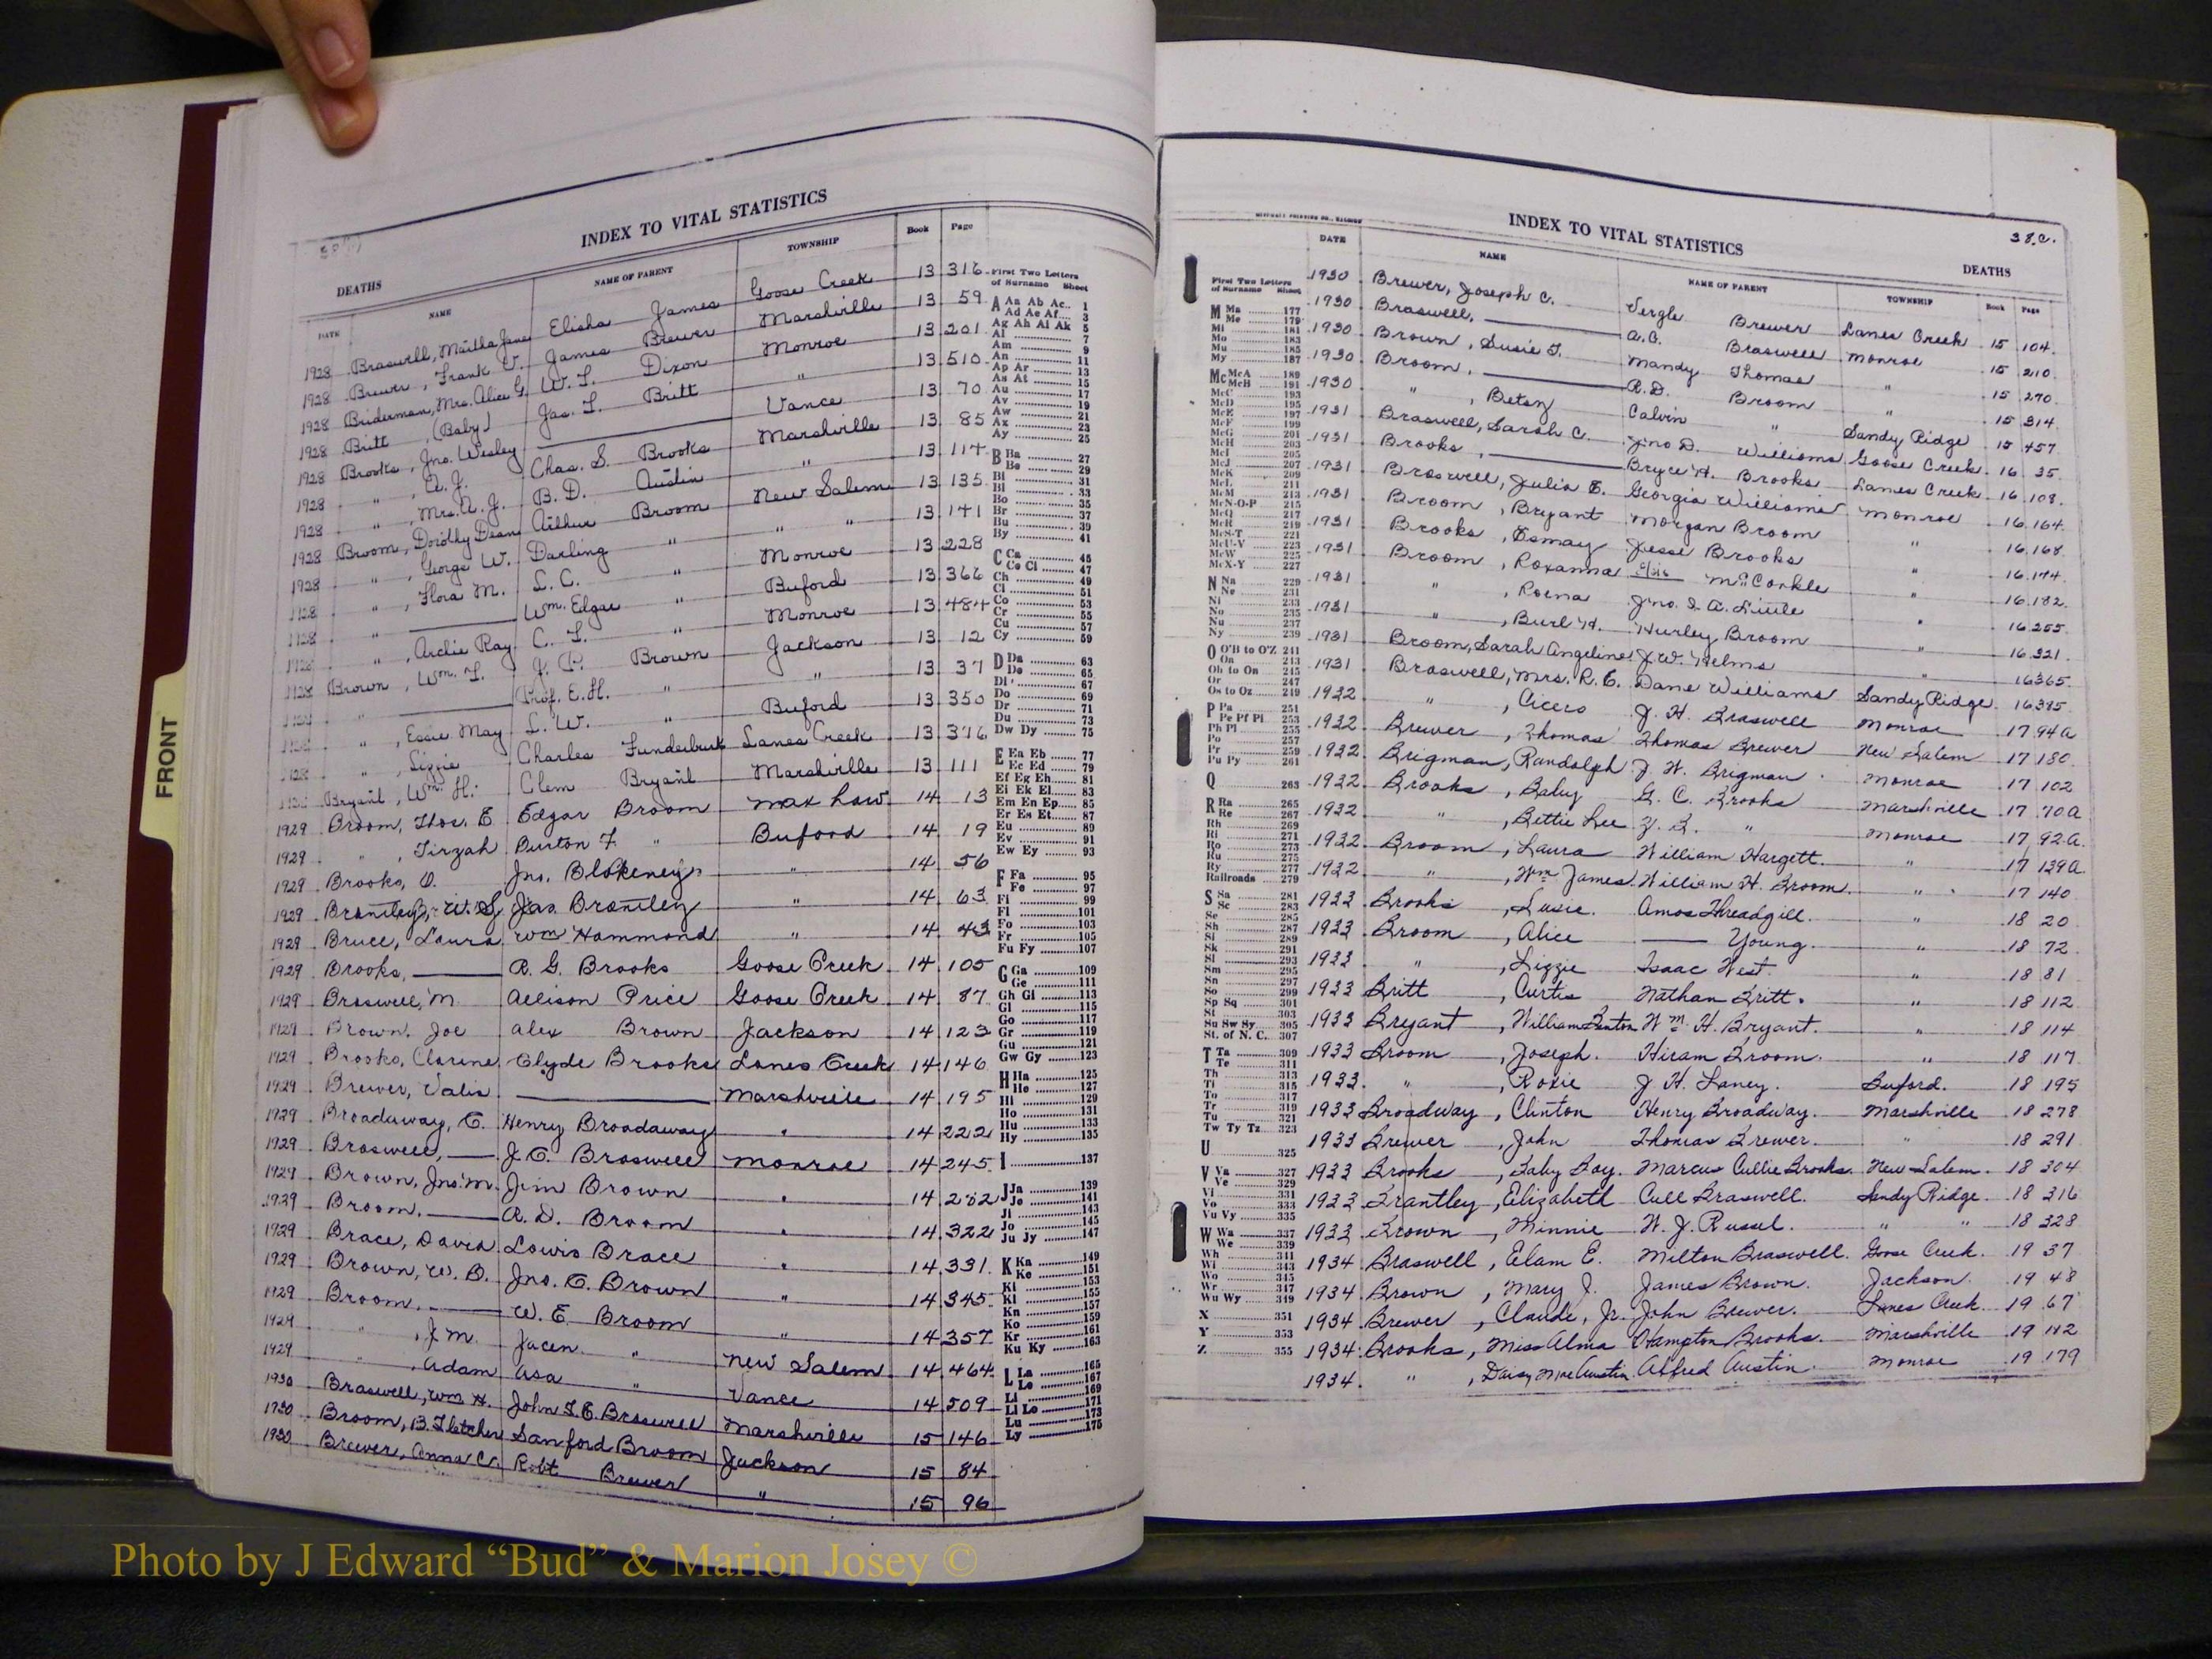 INDEX TO VITAL STATISTICS
DEATHS
DATE NAME NAME OF PARENT TOWNSHIP Book Page
1928 Braswell, Martha Jane Elisha James Goose Creek 13 316
1928 Brewer, Frank V. James Brewer Marshville 13 59
1928 Briderman, Mrs. Alice G. W. L. Dixon Monroe 13 201
1928 Britt, (Baby) Jas. L. Britt " 13 510
1928 Brooks, Jno. Wesley Vance 13 70
1928 " , A. J. Chas. S. Brooks Marshville 13 85
1928 " , Mrs. A. J. B. D. Austin " 13 114
1928 Broom, Dorothy Dean Arthur Broom New Salem 13 135
1928 " , George W. Darling " " " 13 141
1928 " , Flora M. L. C. " Monroe 13 228
1928 " Wm. Edgar " Buford 13 366
1928 " , Archie Ray C. L. " Monroe 13 484
1928 Brown, Wm. T. J. P. Brown Jackson 13 12
" Prof. E. H. " " 13 37
" , Essie May L. W. " Buford 13 350
1928 " , Lizzie Charles Funderburk Lanes Creek 13 376
Bryant, Wm. H. Clem Bryant Marshville 13 111
1929 Broom, Thos. E Edgar Broom 14 13
1929 " , Tirzah Burton F. " Buford 14 19
1929 Brooks, O. Jno. Blakeney " 14 56
1929 Brantley, W. S. Jas. Brantley " 14 63
1929 Bruce, Laura Wm Hammond " 14 43
1929 Brooks, R. G. Brooks Goose Creek 14 105
1929 Braswell, M. Allison Price Goose Creek 14 87
1929 Brown, Joe Alex Brown Jackson 14 123
1929 Brooks, Clarine Clyde Brooks Lanes Creek 14 146
1929 Brewer, Valis Marshville 14 195
1929 Broadaway, C. Henry Broadaway " 14 222
1929 Braswell, J. C. Braswell Monroe 14 245
1929 Brown, Jno. M. Jim Brown " 14 282
1929 Broom, A. D. Broom " 14 322
1929 Brace, David Lowis Brace " 14 331
1929 Brown, W. B. Jno. C. Brown " 14 345
1929 Broom, W. E. Broom " 14 357
1929 " , J. M. Jacen " New Salem 14 464
1929 " , Adam Asa " Vance 14 509
1930 Braswell, Wm H. John L. E. Braswell Marshville 15 146
1930 Broom, B. Fletcher Sanford Broom Jackson 15 84
1930 Brewer, Anna C. Robt Brewer " 15 96
First Two Letters
of Surname Sheet
A Aa Ab Ac 1
Ad Ae Af 3
Ag Ah Ai Ak 5
Al 7
Am 9
An 11
Ap Ar 13
As At 15
Au 17
Av 19
Aw 21
Ax 23
Ay 25
B Ba 27
Be 29
Bi 31
Bl 33
Bo 35
Br 37
Bu 39
By 41
C Ca 45
Ce Ci 47
Ch 49
Cl 51
Co 53
Cr 55
Cu 57
Cy 59
D Da 63
De 65
Di 67
Do 69
Dr 71
Du 73
Dw Dy 75
E Ea Eb 77
Ec Ed 79
Ef Eg Eh 81
Ei Ek El 83
Em En Ep 85
Er Es Et 87
Eu 89
Ev 91
Ew Ey 93
F Fa 95
Fe 97
Fi 99
Fl 101
Fo 103
Fr 105
Fu Fy 107
G Ga 109
Ge 111
Gh Gi 113
Gl 115
Go 117
Gr 119
Gu 121
Gw Gy 123
H Ha 125
He 127
Hi 129
Ho 131
Hu 133
Hy 135
I 137
J Ja 139
Je 141
Ji 143
Jo 145
Ju Jy 147
K Ka 149
Ke 151
Ki 153
Kl 155
Kn 157
Ko 159
Kr 161
Ku Ky 163
L La 165
Le 167
Li 169
Ll Lo 171
Lu 173
Ly 175
INDEX TO VITAL STATISTICS
38.C.
DEATHS
DATE NAME NAME OF PARENT TOWNSHIP Book Page
First Two Letters
of Surname Sheet
M Ma 177
Me 179
Mi 181
Mo 183
Mu 185
My 187
Mc McA 189
McB 191
McC 193
McD 195
McE 197
McF 199
McG 201
McH 203
McI 205
McJ 207
McK 209
McL 211
McM 213
McN-O-P 215
McQ 217
McR 219
McS-T 221
McU-V 223
McW 225
McX-Y 227
N Na 229
Ne 231
Ni 233
No 235
Nu 237
Ny 239
O O'B to O'Z 241
Oa 243
Ob to On 245
Or 247
Os to Oz 249
P Pa 251
Pe Pf Pi 253
Ph Pl 255
Po 257
Pr 259
Pu Py 261
Q 263
R Ra 265
Re 267
Rh 269
Ri 271
Ro 273
Ru 275
Ry 277
Railroads 279
S Sa 281
Sc 283
Se 285
Sh 287
Si 289
Sk 291
Sl 293
Sm 295
Sn 297
So 299
Sp Sq 301
St 303
Su Sw Sy 305
St. of N. C. 307
T Ta 309
Te 311
Th 313
Ti 315
To 317
Tr 319
Tu 321
Tw Ty Tz 323
U 325
V Va 327
Ve 329
Vi 331
Vo 333
Vu Vy 335
W Wa 337
We 339
Wh 341
Wi 343
Wo 345
Wr 347
Wu Wy 349
X 351
Y 353
Z 355
1930 Brewer, Joseph C. Vergle Brewer Lanes Creek 15 104
1930 Braswell, A. C. Braswell Monroe 15 210
1930 Brown, Susie T. Mandy Thomas " 15 270
1930 Broom, R. D. Broom " 15 314
1930 " , Betsy Calvin " Sandy Ridge 15 457
1931 Braswell, Sarah C. Jno D. Williams Goose Creek 16 35
1931 Brooks, Bryce H. Brooks Lanes Creek 16 108
1931 Braswell, Julia E. Georgia Williams Monroe 16 164
1931 Broom, Bryant Morgan Broom " 16 168
1931 Brooks, Esmay Jesse Brooks " 16 174
1931 Broom, Roxanna McCorkle " 16 182
1931 " , Roena Jno. I. A. " 16 255
1931 " , Burl H. Hurley Broom " 16 321
1931 Broom, Sarah Angeline J. W. Helms " 16 365
1931 Braswell, Mrs. R. E. Dane Williams Sandy Ridge 16 385
1932 " , Cicero J. H. Braswell Monroe 17 94a
1932 Brewer, Thomas Thomas Brewer New Salem 17 180
1932 Brigman, Randolph J. W. Brigman Monroe 17 102
1932 Brooks, Baby G. C. Brooks Marshville 17 70a
1932 " , Bettie Lee " Monroe 17 92a
1932 Broom, Laura William Hargett " 17 139a
1932 " , Wm James William H. Broom " 17 140
1933 Brooks, Susie Amos Threadgill " 18 20
1933 Broom, Alice Young " 18 72
1933 " , Lizzie Isaac West " 18 81
1933 Britt, Curtis Nathan Britt " 18 112
1933 Bryant, William Benton Wm. H. Bryant " 18 114
1933 Broom, Joseph Hiram Broom " 18 117
1933 " , Roxie J. H. Laney Buford 18 195
1933 Broadway, Clinton Henry Broadway Marshville 18 278
1933 Brewer, John Thomas Brewer " 18 291
1933 Brooks, Baby Boy Marcus Cullie Brooks New Salem 18 304
1933 Brantley, Elizabeth Cull Braswell Sandy Ridge 18 316
1933 Brown, Minnie W. J. Russel " " 18 328
1934 Braswell, Elam E. Milton Braswell Goose Creek 19 37
1934 Brown, Mary J. James Brown Jackson 19 48
1934 Brewer, Claude, Jr. John Brewer Lanes Creek 19 67
1934 Brooks, Miss Alma Hampton Brooks Marshville 19 112
1934 " , Daisy Mae Austin Alfred Austin Monroe 19 179
FRONT
Photo by J Edward “Bud” & Marion Josey ©